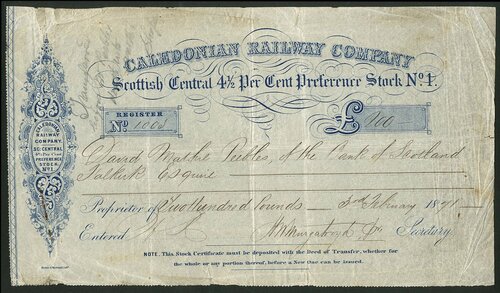 CALEDONIAN RAILWAY COMPANY
Scottish Central 4½ Per Cent Preference Stock Nº 1.
REGISTER
Nº 1003
£ 200
CALEDONIAN
RAILWAY
COMPANY.
SC: CENTRAL
4½ Per Cent
PREFERENCE
STOCK
Nº 1
David Peebles, of the Bank of Scotland
Falkirk Esquire
Proprietor of Two Hundred Pounds — 3rd February 1871
Entered
Secretary
NOTE. This Stock Certificate must be deposited with the Deed of Transfer, whether for
the whole or any portion thereof, before a New One can be issued.